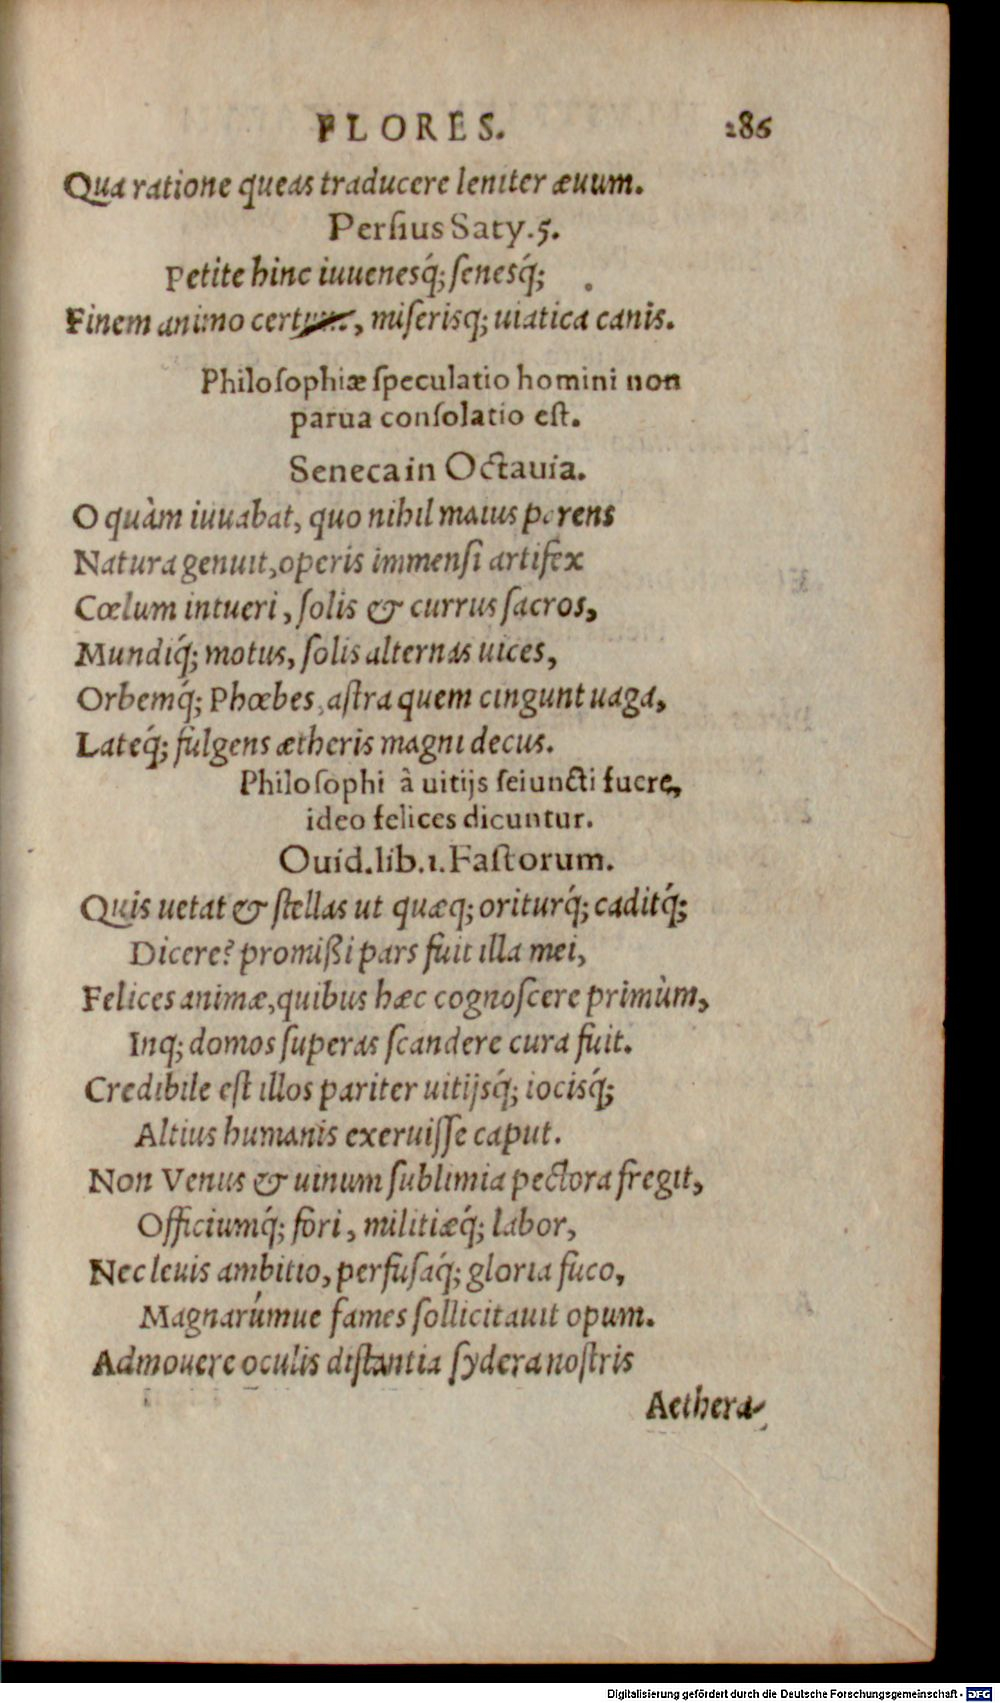 FLORES. 286
Qua ratione queas traducere leniter æuum.
Persius Saty. 5.
Petite hinc iuuenesq́; ſenesq́;
Finem animo , miſerisq; uiatica canis.
Philoſophiæ ſpeculatio homini non
parua conſolatio eſt.
Seneca in Octauia.
O quàm iuuabat, quo nihil maius parens
Natura genuit, operis immenſi artifex
Cœlum intueri, ſolis & currus ſacros,
Mundiq́; motus, ſolis alternas uices,
Orbemq́; Phœbes, aſtra quem cingunt uaga,
Lateq́; fulgens ætheris magni decus.
Philoſophi à uitijs ſeiuncti fuere,
ideo felices dicuntur.
Ouid. lib. 1. Faſtorum.
Quis uetat & ſtellas ut quæq; oriturq́; caditq́;
Dicere? promißi pars fuit illa mei,
Felices animæ, quibus hæc cognoſcere primùm,
Inq; domos ſuperas ſcandere cura fuit.
Credibile eſt illos pariter uitijsq́; iocisq́;
Altius humanis exeruiſſe caput.
Non Venus & uinum ſublimia pectora fregit,
Officiumq́; fori, militiæq́; labor,
Nec leuis ambitio, perfuſaq́; gloria fuco,
Magnarúmue fames ſollicitauit opum.
Admouere oculis diſtantia ſydera noſtris
Aethera
Digitalisierung gefördert durch die Deutsche Forschungsgemeinschaft - DFG